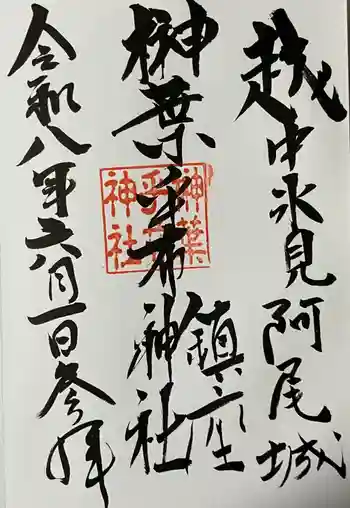 越中氷見阿尾城
鎮座
榊葉乎布神社
榊葉
乎布
神社
令和八年六月一日参拝